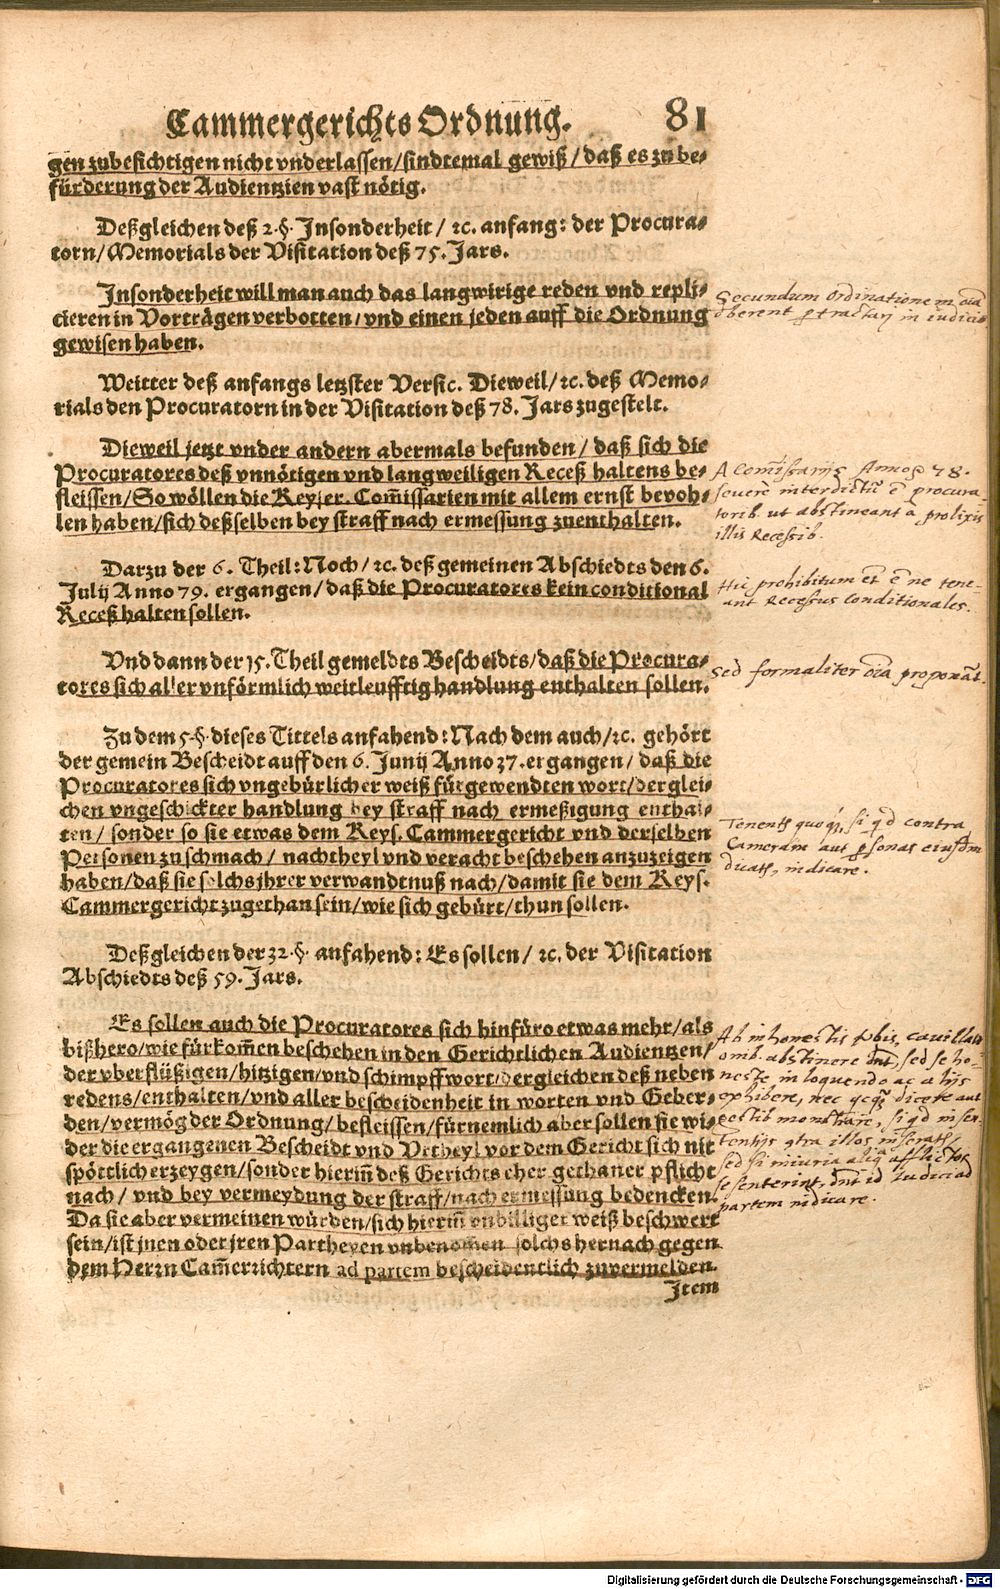 Cammergerichts Ordnung. 81
gen zubesichtigen nicht vnderlassen/sindtemal gewiß/daß es zu be⸗
fürderung der Audientzien vast nötig.
Deßgleichen deß 2.§. Insonderheit/ ꝛc. anfang: der Procura⸗
torn/Memorials der Visitation deß 75. Jars.
Insonderheit will man auch das langwirige reden vnd repli⸗
cieren in Vorträgen verbotten/vnd einen jeden auff die Ordnung
gewisen haben.
Secundum ordinationem oīa
dberent ptractari in iudicio
Weitter deß anfangs letzster Versic. Dieweil/ꝛc. deß Memo⸗
rials den Procuratorn in der Visitation deß 78. Jars zugestelt.
Dieweil jetzt vnder andern abermals befunden/ daß sich die
Procuratores deß vnnötigen vnd langweiligen Receß haltens be⸗
fleissen/So wöllen die Keyser. Com̃issarien mit allem ernst bevoh⸗
len haben/sich deßselben bey straff nach ermessung zuenthalten.
A Comissarijs Annoꝫ 78.
seuerè interdictū ē procura⸗
torib. ut abstineant à prolixis
illis Recessib.
Darzu der 6. Theil: Noch/ꝛc. deß gemeinen Abschiedts den 6.
Julij Anno 79. ergangen/daß die Procuratores kein conditional
Receß halten sollen.
Hic prohibitum et ē ne tene⸗
ant Recessus conditionales.
Vnd dann der 15. Theil gemeldts Bescheidts/daß die Procura⸗
tores sich aller vnförmlich weitleufftig handlung enthalten sollen.
Sed formaliter oīa proponāt.
Zu dem 5.§. dieses Tittels anfahend: Nach dem auch/ꝛc. gehört
der gemein Bescheidt auff den 6. Junij Anno 37. ergangen/ daß die
Procuratores sich vngebürlicher weiß fürgewendten wort/derglei⸗
chen vngeschickter handlung bey straff nach ermeßigung enthal⸗
ten/ sonder so sie etwas dem Keys. Cammergericht vnd derselben
Personen zu schmach/ nachtheyl vnd veracht beschehen anzuzeigen
haben/daß sie solchs jhrer verwandtnuß nach/damit sie dem Keys.
Cammergericht zugethan sein/wie sich gebürt/thun sollen.
Tenentʳ quoqꝫ, si qd contra
Cameram aut psonas eiusdm
dicatʳ, indicare.
Deßgleichen der 32.§. anfahend: Es sollen/ ꝛc. der Visitation
Abschiedts deß 59. Jars.
Es sollen auch die Procuratores sich hinfüro etwas mehr/als
bißhero/wie fürkom̃en beschehen in den Gerichtlichen Audientzen/
der vberflüßigen/hitzigen/vnd schimpffwort/dergleichen deß neben
redens/enthalten/vnd aller bescheidenheit in worten vnd Geber⸗
den/vermög der Ordnung/ befleissen/fürnemlich aber sollen sie wi⸗
der die ergangenen Bescheidt vnd Vrtheyl vor dem Gericht sich nit
spöttlich erzeygen/sonder hierin̄ deß Gerichts eher gethaner pflicht
nach/ vnd bey vermeydung der straff/nach ermessung bedencken.
Da sie aber vermeinen würden/sich hierin̄ vnbilliger weiß beschwert
sein/ist jnen oder jren Partheyen vnbenom̃en solchs hernach gegen
dem Herrn Cam̃errichtern ad partem bescheidentlich zuvermelden.
Ab inhonestis vbis, cauillati⸗
onib. abstinere dnt, sed se ho⸗
neste in loquendo ac alijs
exhibere, nec dicere aut
gestib monstrare, si qd in sen⸗
tentijs contra illos
sed si iniuria aliq afflictos
se senserint, dnt id Iudici ad
partem indicare.
Item
Digitalisierung gefördert durch die Deutsche Forschungsgemeinschaft - DFG